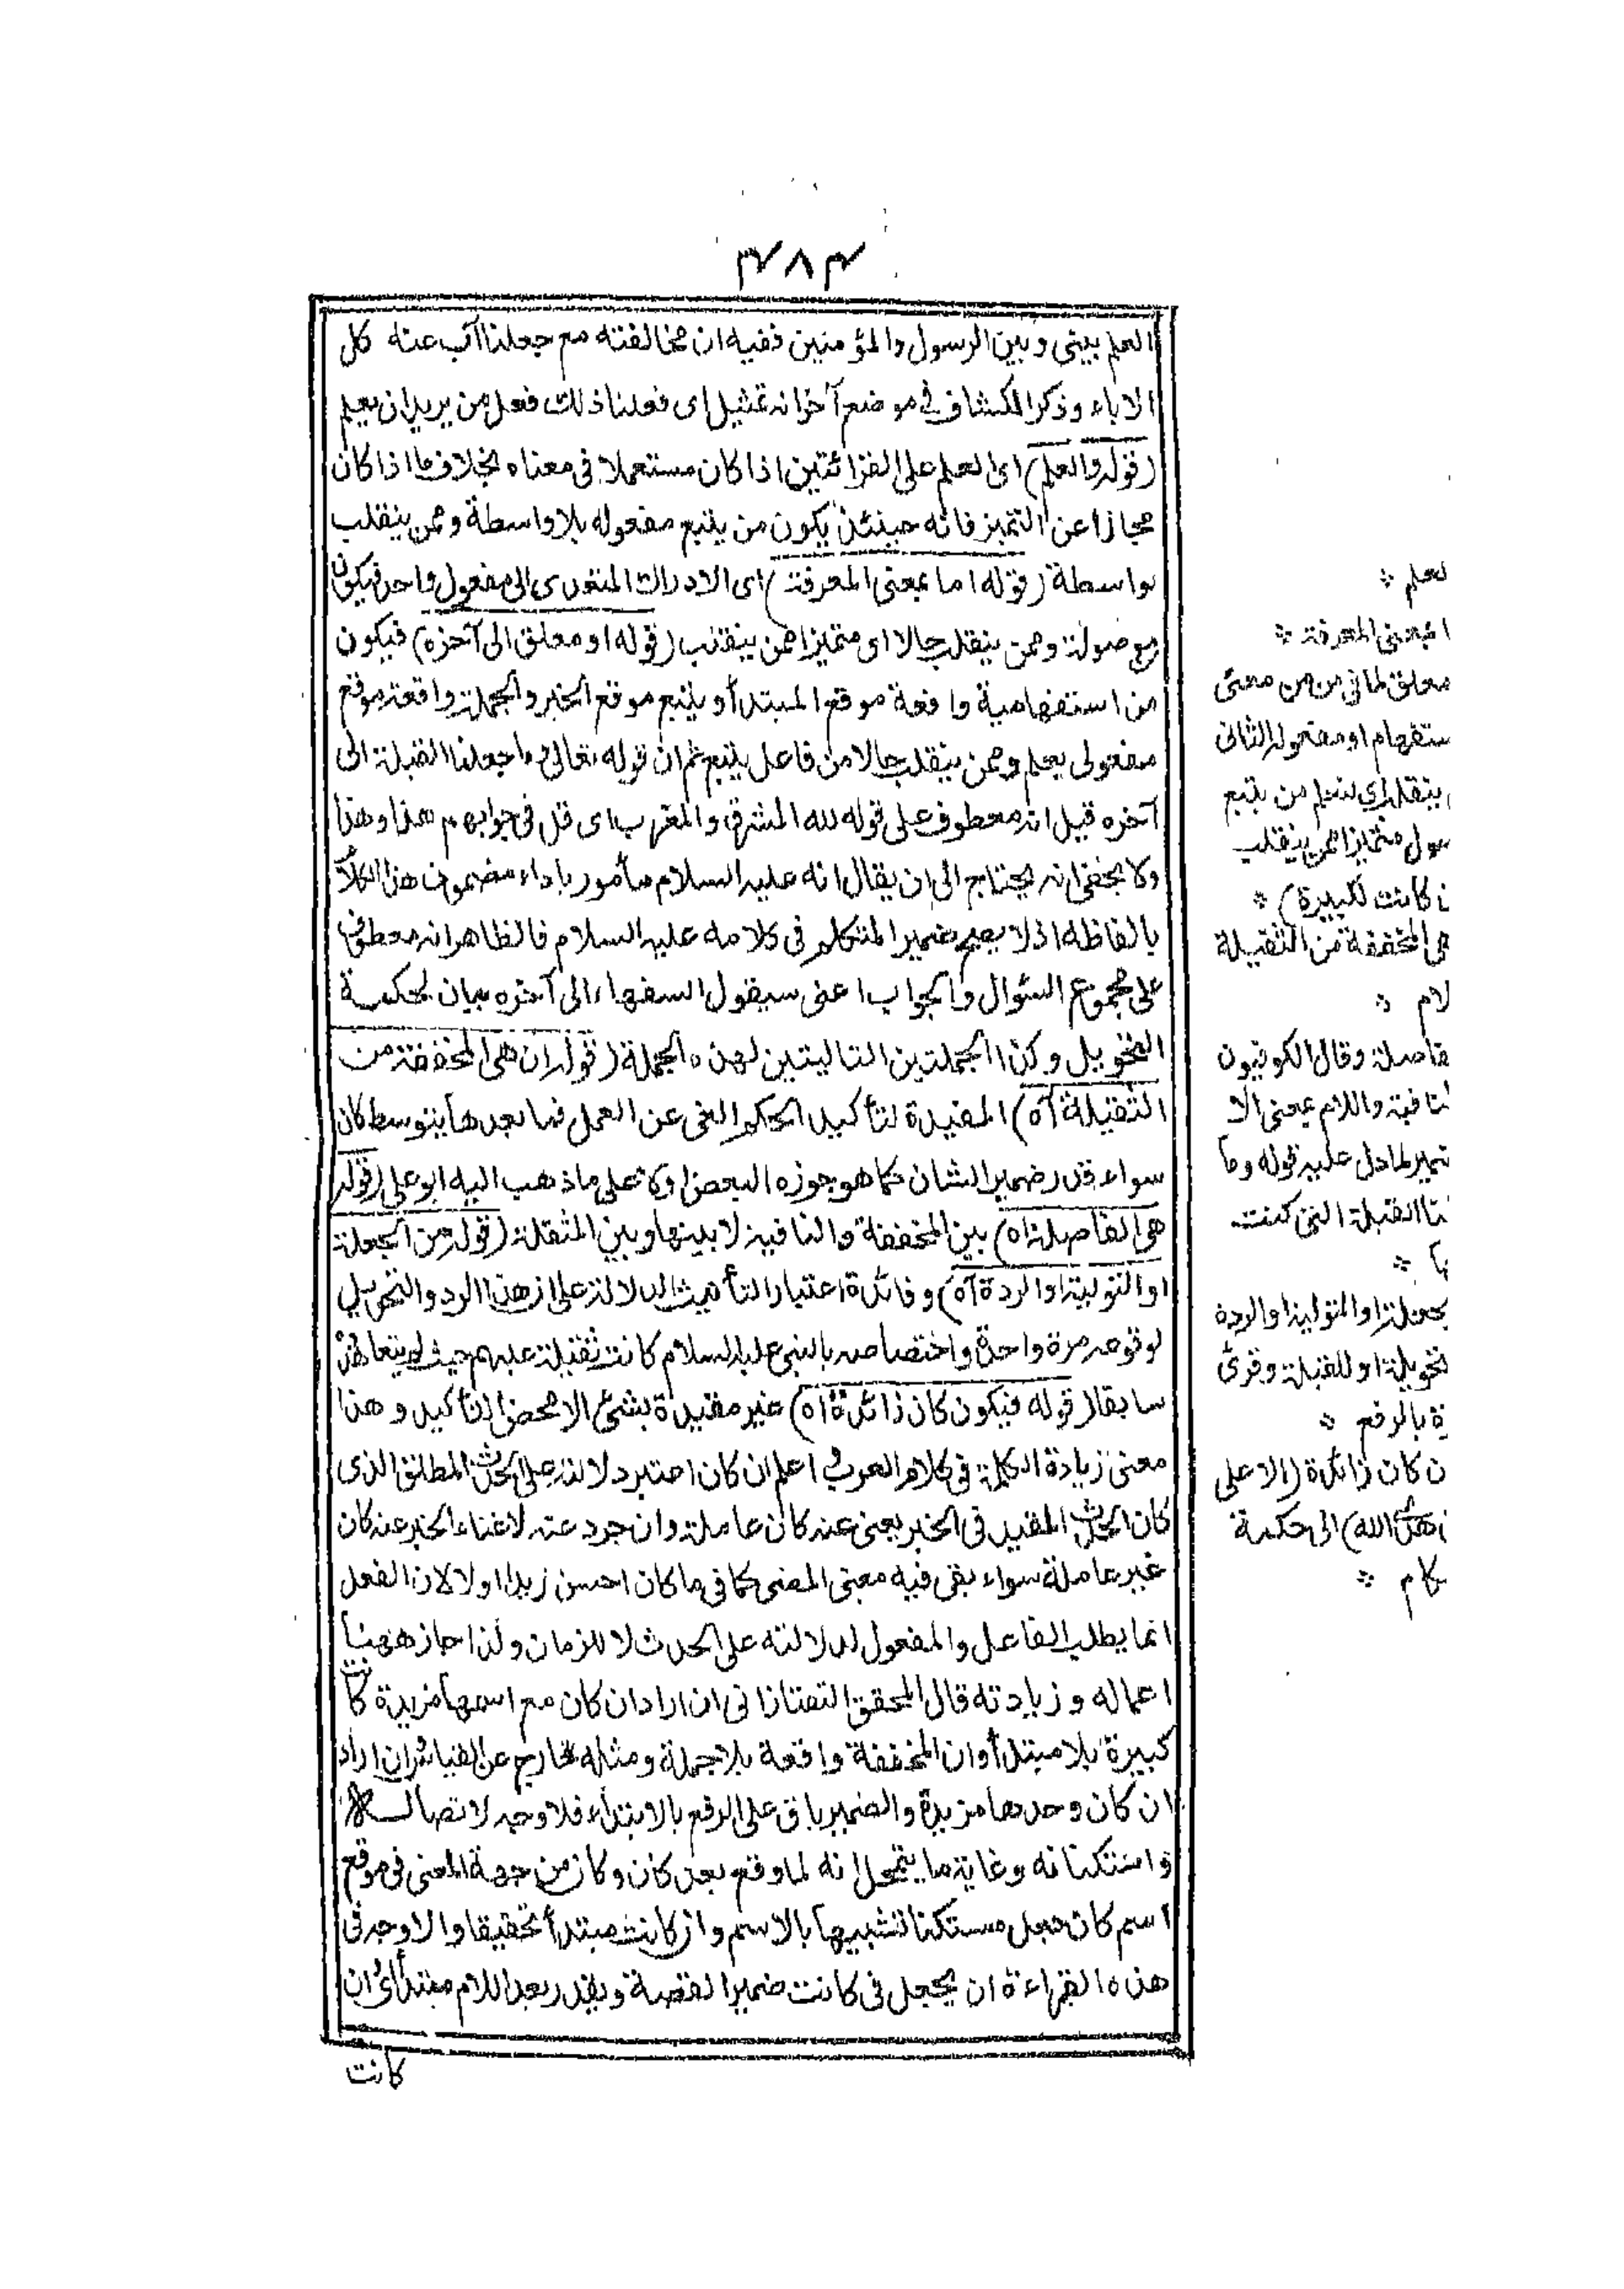 ٣٨٣
العلم بيني وبين الرسول والمؤمنين ففيه ان مخالفته مع جعلنا آب عنه كل
الاباء وذكر الكشاف في موضع آخر انه تمثيل اى فعلنا ذلك فعل من يريد ان يعلم
(قوله والعلم) اى العلم على القرائتين اذا كان مستعملا فى معناه بخلاف ما اذا كان
مجازا عن التميز فانه حينئذ يكون من يتبع مفعوله بلا واسطة وممن ينقلب
بواسطة (قوله اما بمعنى المعرفة) اى الادراك المتعدى الى مفعول واحد فيكون
موصولة وممن ينقلب حالا اى متميزا ممن ينقلب (قوله او معلق الى آخره) فيكون
من استفهامية واقعة موقع المبتدأ ويتبع موقع الخبر والجملة واقعة موقع
مفعولى يعلم وممن ينقلب حالا من فاعل يتبع ثم ان قوله تعالى وما جعلنا القبلة الى
آخره قيل انه معطوف على قوله لله المشرق والمغرب اى قل فى جوابهم هذا وهذا
ولا يخفى انه يحتاج الى ان يقال انه عليه السلام مأمور باداء مضمون هذا الكلام
بالفاظه اذ لا يصح ضمير المتكلم فى كلامه عليه السلام فالظاهر انه معطوف
على مجموع السؤال والجواب اعنى سيقول السفهاء الى آخره بيان لحكمة
التحويل وكذا الجملتين التاليتين لهذه الجملة (قوله ان هى المخففة من
الثقيلة اه) المفيدة لتأكيد الحكم الغى عن العمل فيما بعدها بتوسط كان
سواء قدر ضمير الشان كما هو جوزه البعض اولا على ما ذهب اليه ابو على (قوله
هى الفاصلة اه) بين المخففة والنافية لا بينها وبين المثقلة (قوله من الجعلة
او التولية او الردة اه) وفائدة اعتبار التأنيث الدلالة على ان هذا الرد والتحويل
لوقوعه مرة واحدة واختصاصه بالنبى عليه السلام كانت ثقيلة عليهم حيث لم يتعاهدوا
سابقا (قوله فيكون كان زائدة اه) غير مفيدة بشئ الا محض التأكيد وهذا
معنى زيادة الكلمة فى كلام العرب اعلم ان كان اعتبر دلالته على الحدث المطلق الذى
كان الحدث المقيد فى الخبر يعنى عنه كان عاملة وان جرد عنه لاغناء الخبر عنه كان
غير عاملة سواء بقى فيه معنى المضى كما فى ما كان احسن زيدا اولا لان الفعل
انما يطلب الفاعل والمفعول لدلالته على الحدث لا للزمان ولذا جاز ههنا
اعماله وزيادته قال المحقق التفتازانى ان اراد ان كان مع اسمها مزيدة كانت
كبيرة بلا مبتدأ وان المخففة واقعة بلا جملة ومثله خارج عن القياس وان اراد
ان كان وحدها مزيدة والضمير باق على الرفع بالابتداء فلا وجه لاتصاله
واستكنانه وغاية ما يتمحل انه لما وقع بعد كان وكان من جهة المعنى فى موقع
اسم كان جعل مستكنا تشبيها بالاسم وان كانت مبتدأ تحقيقا والاوجه فى
هذه القراءة ان يجعل فى كانت ضمير القصة ويقدر بعد اللام مبتدأ اى ان
كانت
لعلم
ا بمعنى المعرفة
معلق لما فى من من معنى
ستفهام او مفعوله الثانى
ينقلب اى لنعلم من يتبع
سول متميزا ممن ينقلب
ن كانت لكبيرة)
هى المخففة من الثقيلة
لام
فاصلة وقال الكوفيون
لنافية واللام بمعنى الا
ضمير لما دل عليه قوله وما
نا القبلة التى كنت
ها
جعلة او التولية او الردة
تحويلة او للقبلة وقرئ
ة بالرفع
ن كان زائدة (الا على
ن هدى الله) الى حكمة
حكام